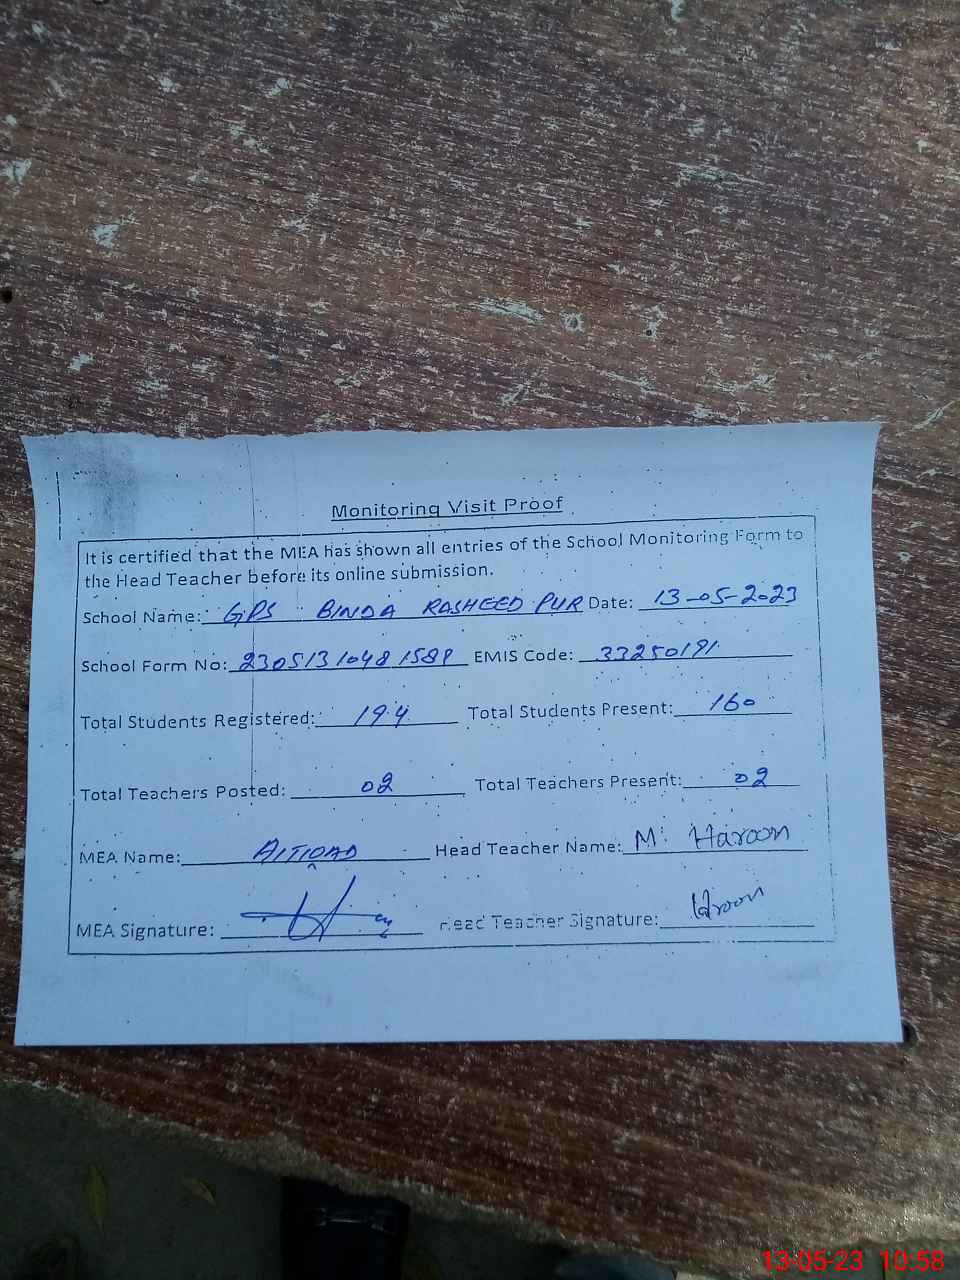 Monitoring Visit Proof
It is certified that the MEA has shown all entries of the School Monitoring Form to
the Head Teacher before its online submission.
School Name: GPS BINDA RASHEED PUR Date: 13-05-2023
School Form No: EMIS Code: 33250191
Total Students Registered: 194 Total Students Present: 160
Total Teachers Posted: 02 Total Teachers Present: 02
MEA Name: Head Teacher Name: M. Haroon
MEA Signature: Head Teacher Signature: Haroon
13-05-23 10:58